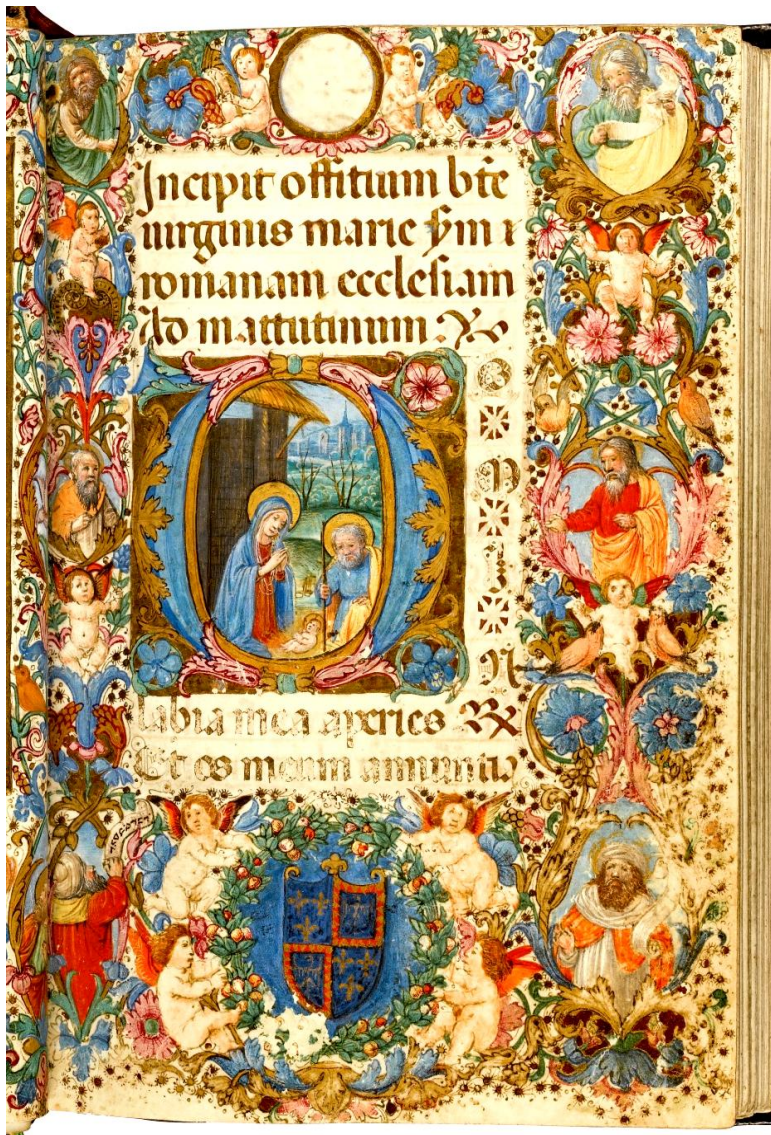 Incipit offitium bt̄e
uirginis marie s̄m
romanam ecclesiam
Ad mattutinum.
D
O
M
I
N
labia mea aperies
Et os meum annuntia